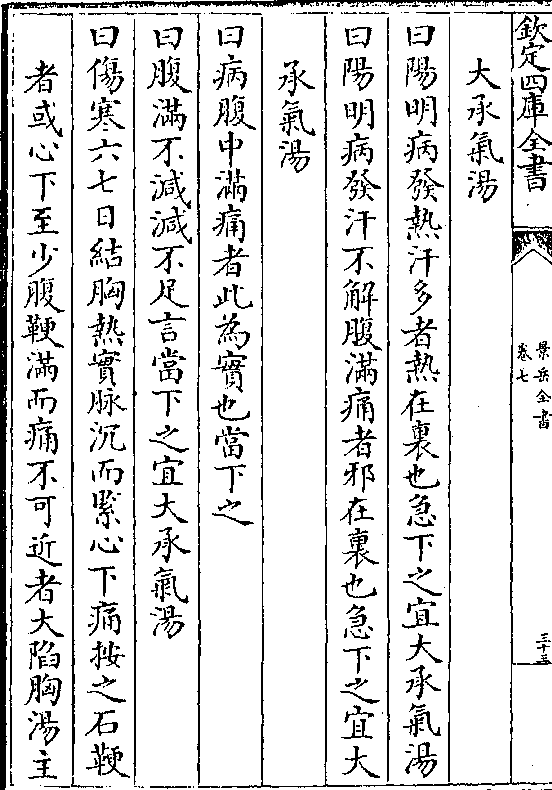 欽定四庫全書
景岳全書
卷七
三十五
大承氣湯
曰陽明病發熱汗多者熱在裏也急下之宜大承氣湯
曰陽明病發汗不解腹滿痛者邪在裏也急下之宜大
承氣湯
曰病腹中滿痛者此為實也當下之
曰腹滿不減減不足言當下之宜大承氣湯
曰傷寒六七日結胸熱實脉沉而緊心下痛按之石鞕
者或心下至少腹鞕滿而痛不可近者大陷胸湯主